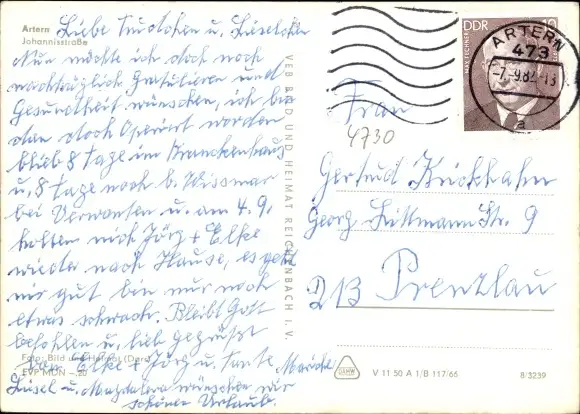 Artern
Johannisstraße
Liebe Trudchen u. Lieselchen
Nun möchte ich doch noch
nachträglich Gratulieren und
Gesundheit wünschen, ich bin
dan doch Operiert worden
blieb 8 Tage im Krankenhaus
u. 8 Tage noch b. Wismar
bei Verwanten u. am 4.9.
holten mich Jörg + Elke
wieder nach Hause, es geht
mir gut bin nur noch
etwas schwach. Bleibt Gott
befohlen u. lieb gegrüßt
von Elke + Jörg u. Tante
Liesel u. Magdalena wünschen wir
schönen Urlaub.
Foto: Bild und Heimat (Darr)
EVP MDN –.20
VEB BILD UND HEIMAT REICHENBACH I. V.
DDR 10
MAX FECHNER
ARTERN
473
-7.-9.82-13
a
Frau
4730
Gertrud Kuckhahn
Georg Littmann Str. 9
213 Prenzlau
V 11 50 A 1/B 117/66
8/3239